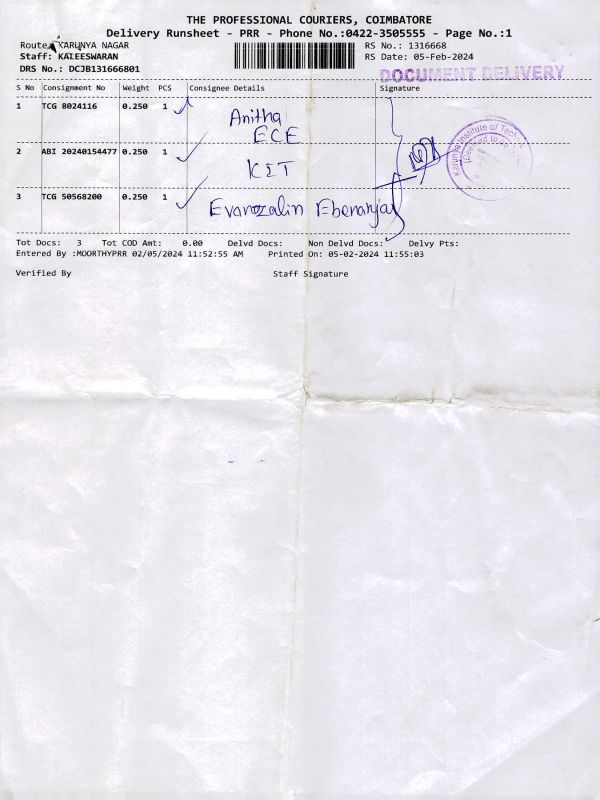 THE PROFESSIONAL COURIERS, COIMBATORE
Delivery Runsheet - PRR - Phone No.:0422-3505555 - Page No.:1
Route: KARUNYA NAGAR
RS No.: 1316668
Staff: KALEESWARAN
RS Date: 05-Feb-2024
DRS No.: DCJB131666801
DOCUMENT DELIVERY
S No Consignment No Weight PCS Consignee Details Signature
1 TCG 8024116 0.250 1 Anitha
ECE
2 ABI 20240154477 0.250 1 KIT
Karunya Institute of
3 TCG 50568200 0.250 1 Evanzalin Ebenanjar
Tot Docs: 3 Tot COD Amt: 0.00 Delvd Docs: Non Delvd Docs: Delvy Pts:
Entered By :MOORTHYPRR 02/05/2024 11:52:55 AM Printed On: 05-02-2024 11:55:03
Verified By Staff Signature